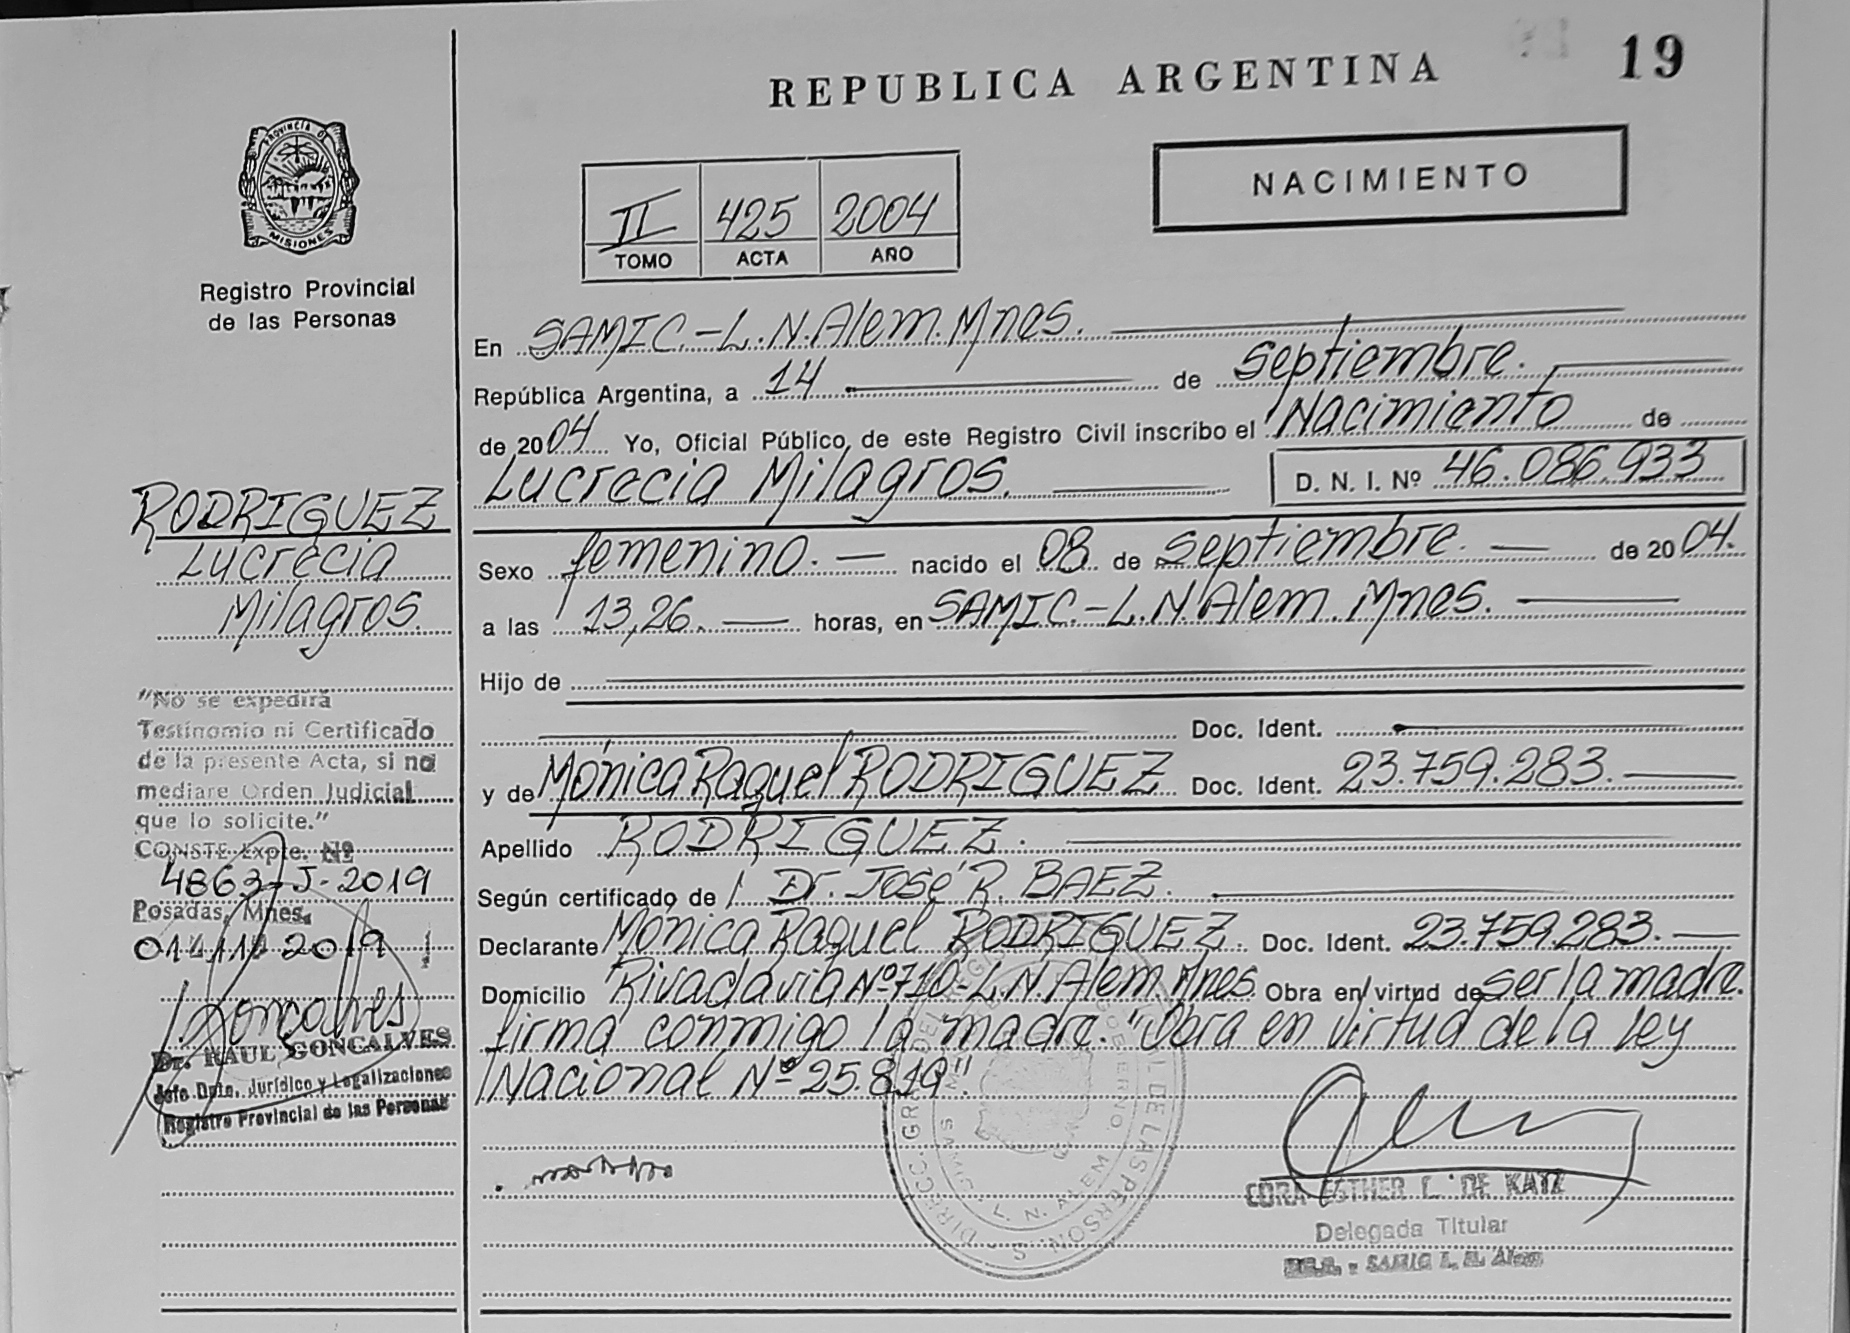 REPUBLICA ARGENTINA
19
PROVINCIA DE
MISIONES
Registro Provincial
de las Personas
II 425 2004
TOMO ACTA AÑO
NACIMIENTO
En SAMIC.-L.N.Alem.Mnes.
República Argentina, a 14 de septiembre.
de 2004 Yo, Oficial Público de este Registro Civil inscribo el Nacimiento de
Lucrecia Milagros. D. N. I. Nº 46.086.933
Sexo femenino. nacido el 08 de septiembre. de 2004.
a las 13,26. horas, en SAMIC.-L.N.Alem.Mnes.
Hijo de
Doc. Ident.
y de Mónica Raquel RODRIGUEZ Doc. Ident. 23.759.283.
Apellido RODRIGUEZ.
Según certificado de Dr. José R. BAEZ.
Declarante Mónica Raquel RODRIGUEZ. Doc. Ident. 23.759.283.
Domicilio Rivadavia Nº710-L.N.Alem.Mnes. Obra en virtud de ser la madre.
firma conmigo la madre. "Obra en virtud de la Ley
Nacional Nº 25.819".
CORA ESTHER L. DE KATZ
Delegada Titular
SAMIC L. N. Alem
RODRIGUEZ
Lucrecia
Milagros.
"No se expedirá
Testinomio ni Certificado
de la presente Acta, si no
mediare Orden Judicial
que lo solicite."
CONSTE Expte. Nº
4863-J-2019
Posadas, Mnes.
2019
Dr. RAUL GONCALVES
Jefe Dpto. Jurídico y Legalizaciones
Registro Provincial de las Personas